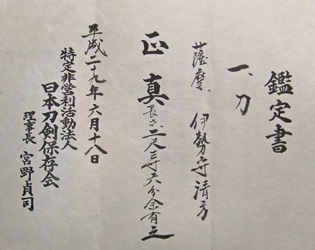 鑑定書
一、刀
薩摩、伊勢守清方
正真 長さ二尺三寸六分余有之
平成二十九年六月十八日
特定非営利活動法人
日本刀剣保存会
理事長 宮野貞司